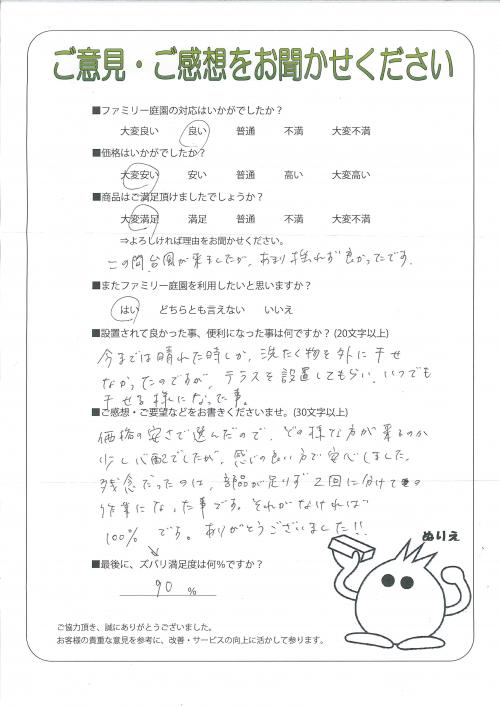 ご意見・ご感想をお聞かせください
■ファミリー庭園の対応はいかがでしたか?
大変良い 良い 普通 不満 大変不満
■価格はいかがでしたか?
大変安い 安い 普通 高い 大変高い
■商品はご満足頂けましたでしょうか?
大変満足 満足 普通 不満 大変不満
⇒よろしければ理由をお聞かせください。
この間、台風が来ましたが、あまり揺れず良かったです。
■またファミリー庭園を利用したいと思いますか?
はい どちらとも言えない いいえ
■設置されて良かった事、便利になった事は何ですか? (20文字以上)
今までは晴れた時しか、洗たく物を外に干せ
なかったのですが、テラスを設置してもらい、いつでも
干せる様になった事。
■ご感想・ご要望などをお書きくださいませ。(30文字以上)
価格の安さで選んだので、どの様な方が来るのか
少し心配でしたが、感じの良い方で安心しました。
残念だったのは、部品が足りず2回に分けての
作業になった事です。それがなければ
100%です。ありがとうございました!!
ぬりえ
■最後に、ズバリ満足度は何%ですか?
90 %
ご協力頂き、誠にありがとうございました。
お客様の貴重な意見を参考に、改善・サービスの向上に活かして参ります。